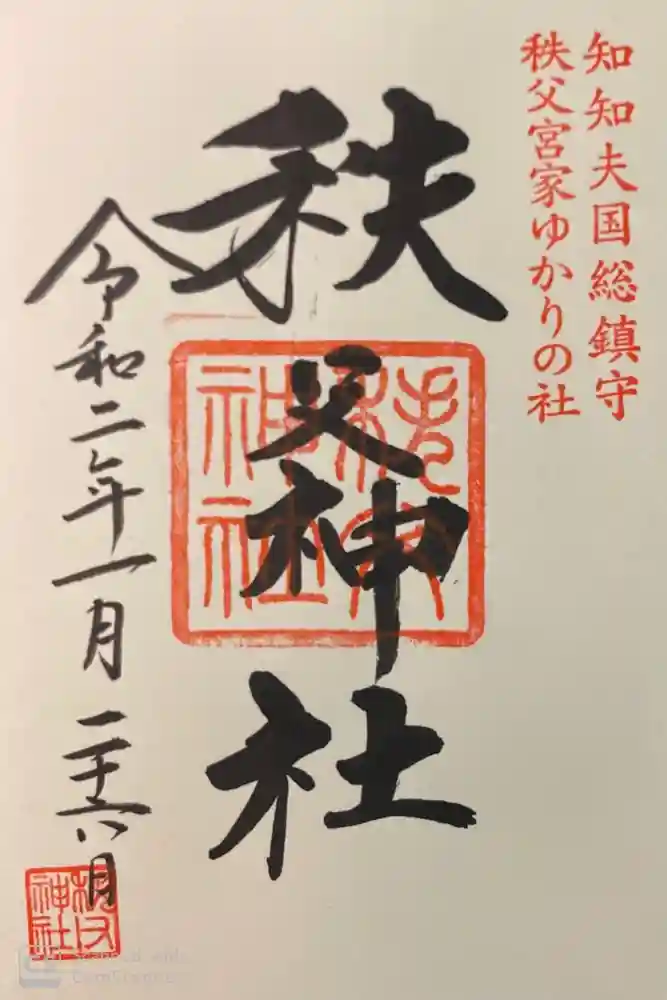 知知夫国総鎮守
秩父宮家ゆかりの社
秩父神社
秩父神社
令和二年一月二十六日
秩父神社
Scanned with
CamScanner